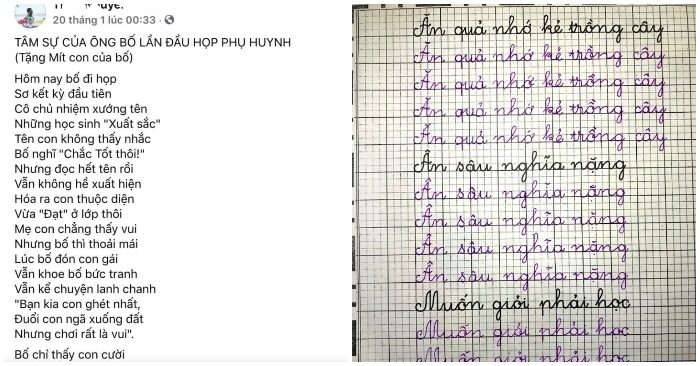 20 tháng 1 lúc 00:33
TÂM SỰ CỦA ÔNG BỐ LẦN ĐẦU HỌP PHỤ HUYNH
(Tặng Mít con của bố)
Hôm nay bố đi họp
Sơ kết kỳ đầu tiên
Cô chủ nhiệm xướng tên
Những học sinh "Xuất sắc"
Tên con không thấy nhắc
Bố nghĩ "Chắc Tốt thôi!"
Nhưng đọc hết tên rồi
Vẫn không hề xuất hiện
Hóa ra con thuộc diện
Vừa "Đạt" ở lớp thôi
Mẹ con chẳng thấy vui
Nhưng bố thì thoải mái
Lúc bố đón con gái
Vẫn khoe bố bức tranh
Vẫn kể chuyện lanh chanh
"Bạn kia con ghét nhất,
Đuổi con ngã xuống đất
Nhưng chơi rất là vui".
Bố chỉ thấy con cười
Ăn quả nhớ kẻ trồng cây
Ăn quả nhớ kẻ trồng cây
Ăn quả nhớ kẻ trồng cây
Ăn quả nhớ kẻ trồng cây
Ăn quả nhớ kẻ trồng cây
Ân sâu nghĩa nặng
Ân sâu nghĩa nặng
Ân sâu nghĩa nặng
Ân sâu nghĩa nặng
Ân sâu nghĩa nặng
Muốn giỏi phải học
Muốn giỏi phải học
Muốn giỏi phải học